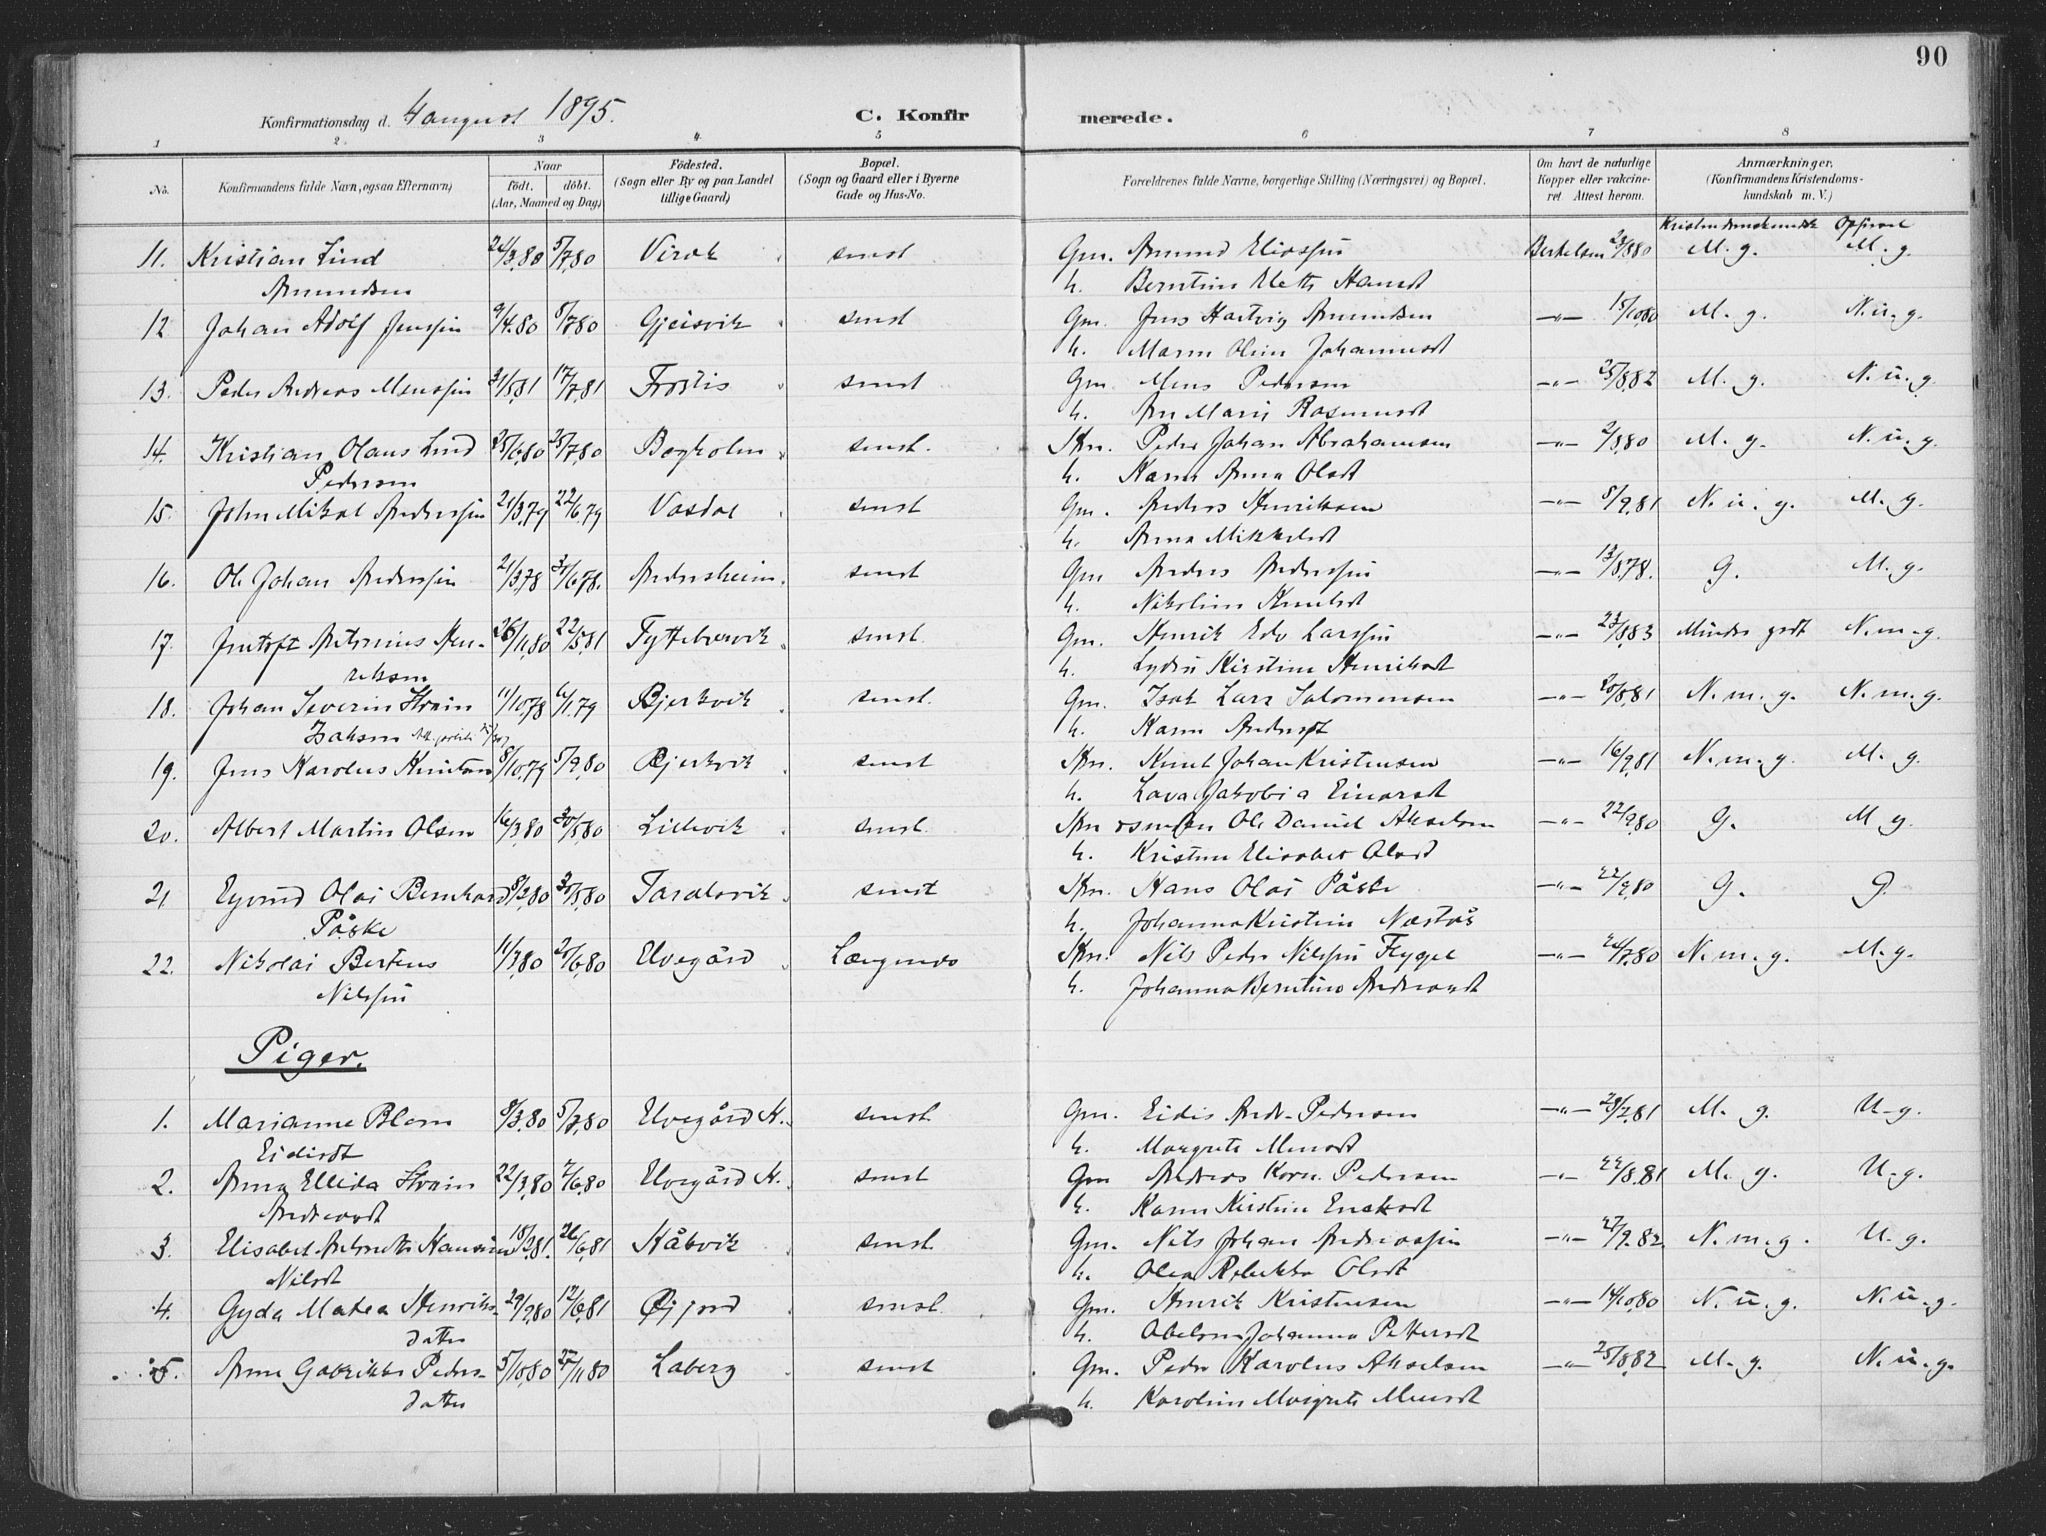 90
Konfirmationsdag d. 4 august 1895. C. Konfirmerede.
1 2 3 4 5 6 7 8
No. Konfirmandens fulde Navn, ogsaa Efternavn) Naar födt. döbt. (Aar, Maaned og Dag) Födested. (Sogn eller By og paa Landet tillige Gaard) Bopæl. (Sogn og Gaard eller i Byerne Gade og Hus-No. Forældrenes fulde Navne, borgerlige Stilling (Næringsvei) og Bopæl. Om havt de naturlige Kopper eller vakcineret Attest herom. Anmærkninger. (Konfirmandens Kristendomskundskab m. V.)
Kristendomskundsk Opførsel
11. Kristian Lind 24/3.80 5/7.80 Virak smst Gm. Amund Eliassen Berkelsen 23/8 80 M. g. M. g.
Amundsen h. Berntine Mette Hansd
12. Johan Adolf Jenssen 9/4.80 8/7.80 Gjeisvik smst Gm. Jens Hartvig Amundsen —"— 15/10.80 M. g. N. u. g.
h. Maren Oline Johannesd
13. Peder Andreas Menssen 31/5.81 17/7.81 Trostis smst Gm Mens Pedersen —"— 25/8.82 M. g. N. u. g.
h. Ane Marie Rasmusdt
14. Kristian Olaus Lind 25/6.80 25/7.80 Bogholm smst. Skn. Peder Johan Abrahamsen —"— 2/8.80 M. g. N. u. g.
Pedersen h. Karen Anna Olsdt
15. John Mikal Anderssen 21/3.79 22/6.79 Vasdal smst Gm. Anders Henriksen —"— 8/9.81 N. u. g. M. g.
h. Anna Mikkelsdt
16. Ole Johan Anderssen 21/3.78 30/6.78. Andersheim smst Gm Anders Anderssen —"— 13/8.78. G. M. g.
h. Nikoline Knudsdt
17. Jentoft Antonius Hen- 26/11.80 22/5.81 Tyttebærvik smst. Gm. Henrik Edv Larssen —"— 23/8.83 Mindre godt N. m. g.
riksen h. Lydia Kirstine Henriksdt
18. Johan Severin Strøm 11/10.78 6/1.79 Bjerkvik smst. Gm. Isak Lars Salomonsen —"— 20/8.81 N. m. g. N. m. g.
Isaksen h. Karen Andersdt
19. Jens Karolus Knutsen 8/10.79 5/9.80 Bjerkvik smst Skn. Knut Johan Kristensen —"— 16/9.81 N. m. g. M. g.
h. Lava Jakobia Einarsdt
20. Albert Martin Olsen 16/3.80 30/5.80 Lillevik smst. Skn Ole Daniel Akselsen —"— 22/9.80 G. M g.
h. Kristine Elisabet Olsdt
21 Eyvind Olai Bernhard 8/2.80 30/5.80 Taraldvik smst Skn. Hans Olai Påske —"— 22/9.80 G. G.
Påske h. Johanna Kristine Næstås
22. Nikolai Berteus 11/3.80 20/6.80 Elvegård Længenes Skn. Nils Peder Nilssen Flygel —"— 24/7.80 N. m. g. M. g.
Nilssen h. Johanna Berntine Andreasdt
Piger.
1. Marianne Blom 8/3.80 5/7.80 Elvegård H. smst. Gm. Eidis Andr. Pedersen —"— 29/7.81 M. g. U. g.
Eidisdt h. Margrete Mensdt
2. Anna Ellida Strøm 22/3.80 7/6.80 Elvegård H. smst Gm Andreas Korn. Pedersen —"— 22/8.81 M. g. U. g.
Andreasdt h. Karen Kirstine Enoksdt
3. Elisabet Hansine 18/2.81. 26/6.81 Håkvik smst Gm. Nils Johan Andreassen —"— 27/9.82 N. m. g. U. g.
Nilsdt h. Olea Rebekka Olsdt
4. Gyda Matea Henriks- 29/9.80 12/6.81 Øijord smst. Gm. Henrik Kristensen —"— 14/10.80 N. u. g. N. u. g.
datter h. Abelone Johanna Pettersdt
5. Anne Gabrikke Peders- 5/10.80 27/11.80 Laberg smst Gm. Peder Karolus Akselsen —"— 25/8.82 M. g. N. u. g.
datter h. Karoline Margrete Mensdt